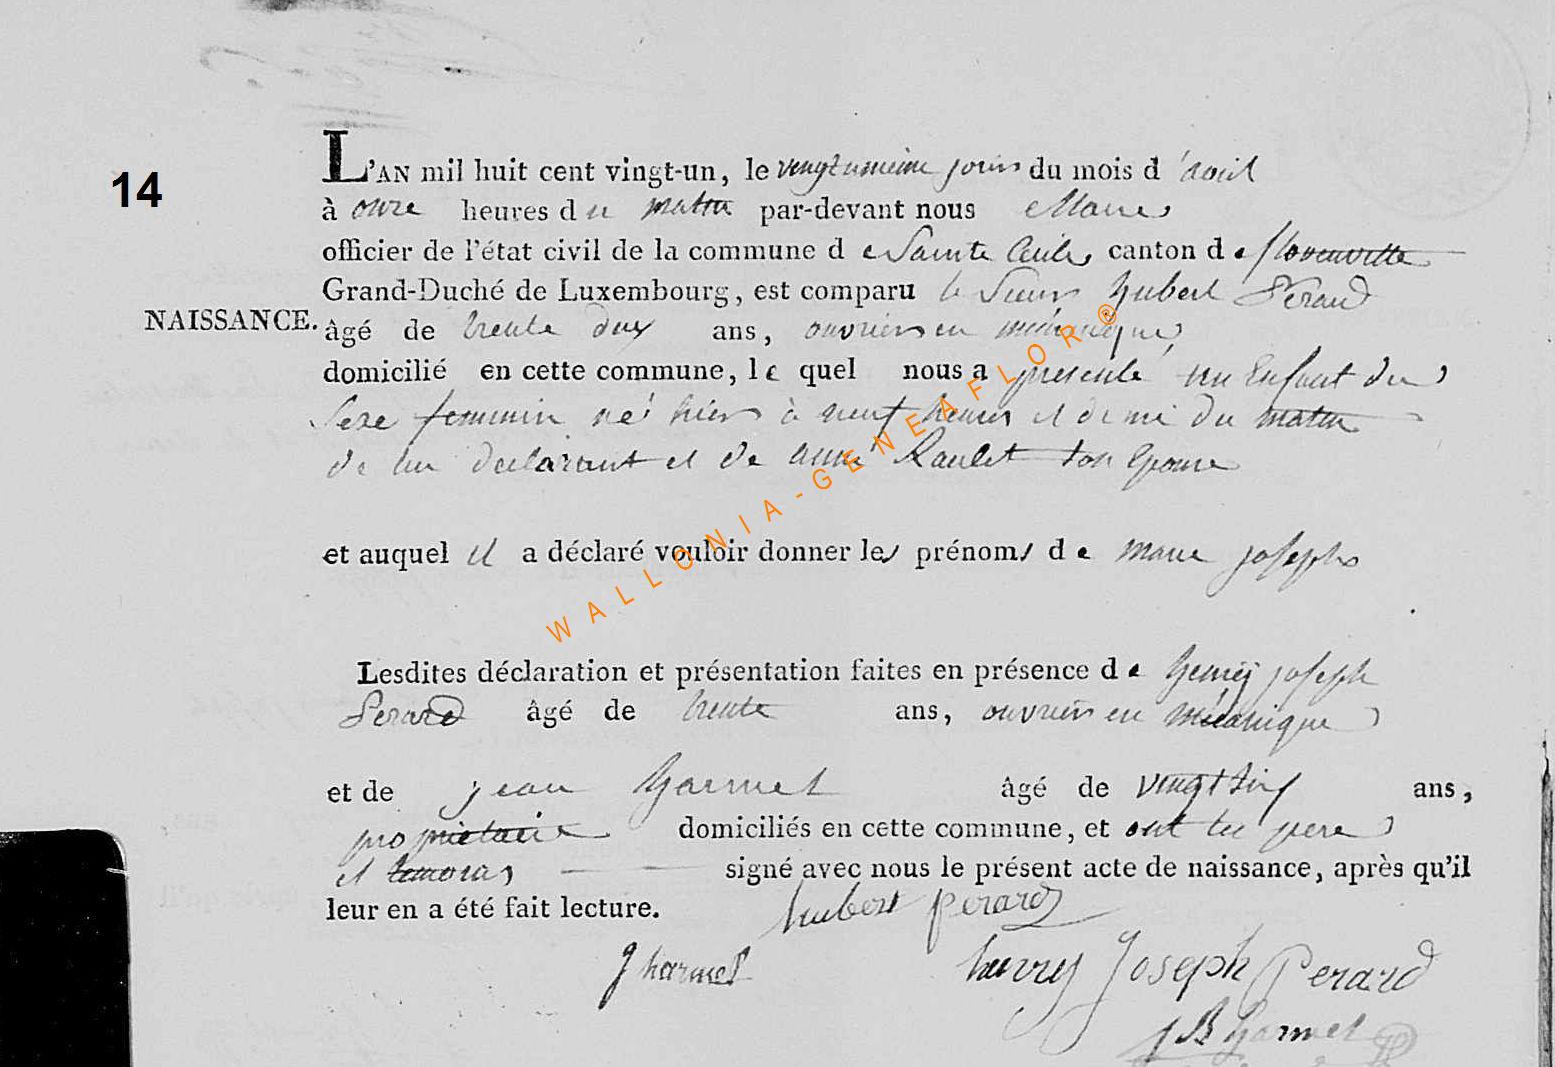 14
L'AN mil huit cent vingt-un, le vingt unieme jour du mois d'aout
à onze heures du matin par-devant nous Maire
officier de l'état civil de la commune de Sainte Cecile canton de florenville
Grand-Duché de Luxembourg, est comparu le Sieur hubert Perard
NAISSANCE.
âgé de trente deux ans, ouvrier en mécanique
domicilié en cette commune, lequel nous a presenté un Enfant du
Sexe feminin né hier à neuf heures et demi du matin
de lui declarant et de anne Raulet son Epouse
et auquel il a déclaré vouloir donner les prénoms de marie joseph
Lesdites déclaration et présentation faites en présence de henry joseph
Perard âgé de trente ans, ouvrier en mécanique
et de jean harmel âgé de vingt six ans,
propriétaire domiciliés en cette commune, et ont les pere
et temoins signé avec nous le présent acte de naissance, après qu'il
leur en a été fait lecture.
hubert perard
J harmel
henry Joseph Perard
J B harmel
WALLONIA-GENEAFLOR®